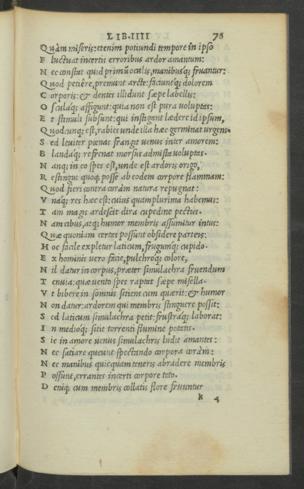 LIB. IIII 78
Quàm miseris: etenim potiundi tempore in ipso
Fluctuat incertis erroribus ardor amantum:
Nec constat quid primū oculis, manibusq; fruantur:
Quod petiere, premunt arcte: faciuntq; dolorem
Corporis: & dentes illidunt sæpe labellis:
Osculaq; affigunt: quia non est pura uoluptas:
Et stimuli subsunt: qui instigant lædere id ipsum,
Quodcunq; est, rabies unde illa hæc germinat urgens.
Sed leuiter pœnas frangit uenus inter amorem:
Blandaq; refrenat morsus admista uoluptas.
Nanq; in eo spes est, unde est ardoris origo,
Restingui quoq; posse ab eodem corpore flammam:
Quod fieri contra coràm natura repugnat:
Vnaq; res hæc est: cuius quam plurima habemus:
Tam magis ardescit dira cupedine pectus.
Nam cibus, atq; humor membris assumitur intus:
Quæ quoniam certas possunt obsidere parteis:
Hoc facile expletur laticum, frugumq; cupido.
Ex hominis uero facie, pulchroq; colore,
Nil datur in corpus, præter simulachra fruendum
Tenuia: quæ uento spes raptat sæpe misella.
Vt bibere in somnis sitiens cum quærit: & humor
Non datur: ardorem qui membris stinguere possit:
Sed laticum simulachra petit: frustraq; laborat:
In medioq; sitit torrenti flumine potans.
Sic in amore uenus simulachris ludit amantes:
Nec satiare queunt spectando corpora coràm:
Nec manibus quicquam teneris abradere membris
Possunt, errantes incerti corpore toto.
Deniq; cum membris collatis flore fruuntur
k 4